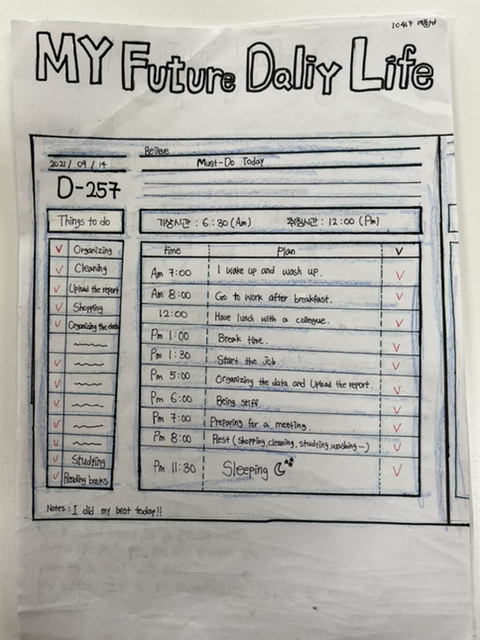 MY Future Daliy Life
Believe
2021 / 09 / 14
Must-Do Today
D-257
Things to do
기상시간 : 6:30 (Am)
취침시간 : 12:00 (Pm)
V Organizing
V Cleaning
V Upload the report
V Shopping
V Organizing the data
V
V
V
V
V Studying
V Reading books
Time Plan V
Am 7:00 I wake up and wash up. V
Am 8:00 Go to work after breakfast. V
12:00 Have lunch with a collegue. V
Pm 1:00 Break time. V
Pm 1:30 Start the job. V
Pm 5:00 Organizing the data and Upload the report. V
Pm 6:00 Being stiff. V
Pm 7:00 Preparing for a meeting. V
Pm 8:00 Rest (shopping, cleaning, studying, washing~) V
Pm 11:30 Sleeping V
Notes : I did my best today!!